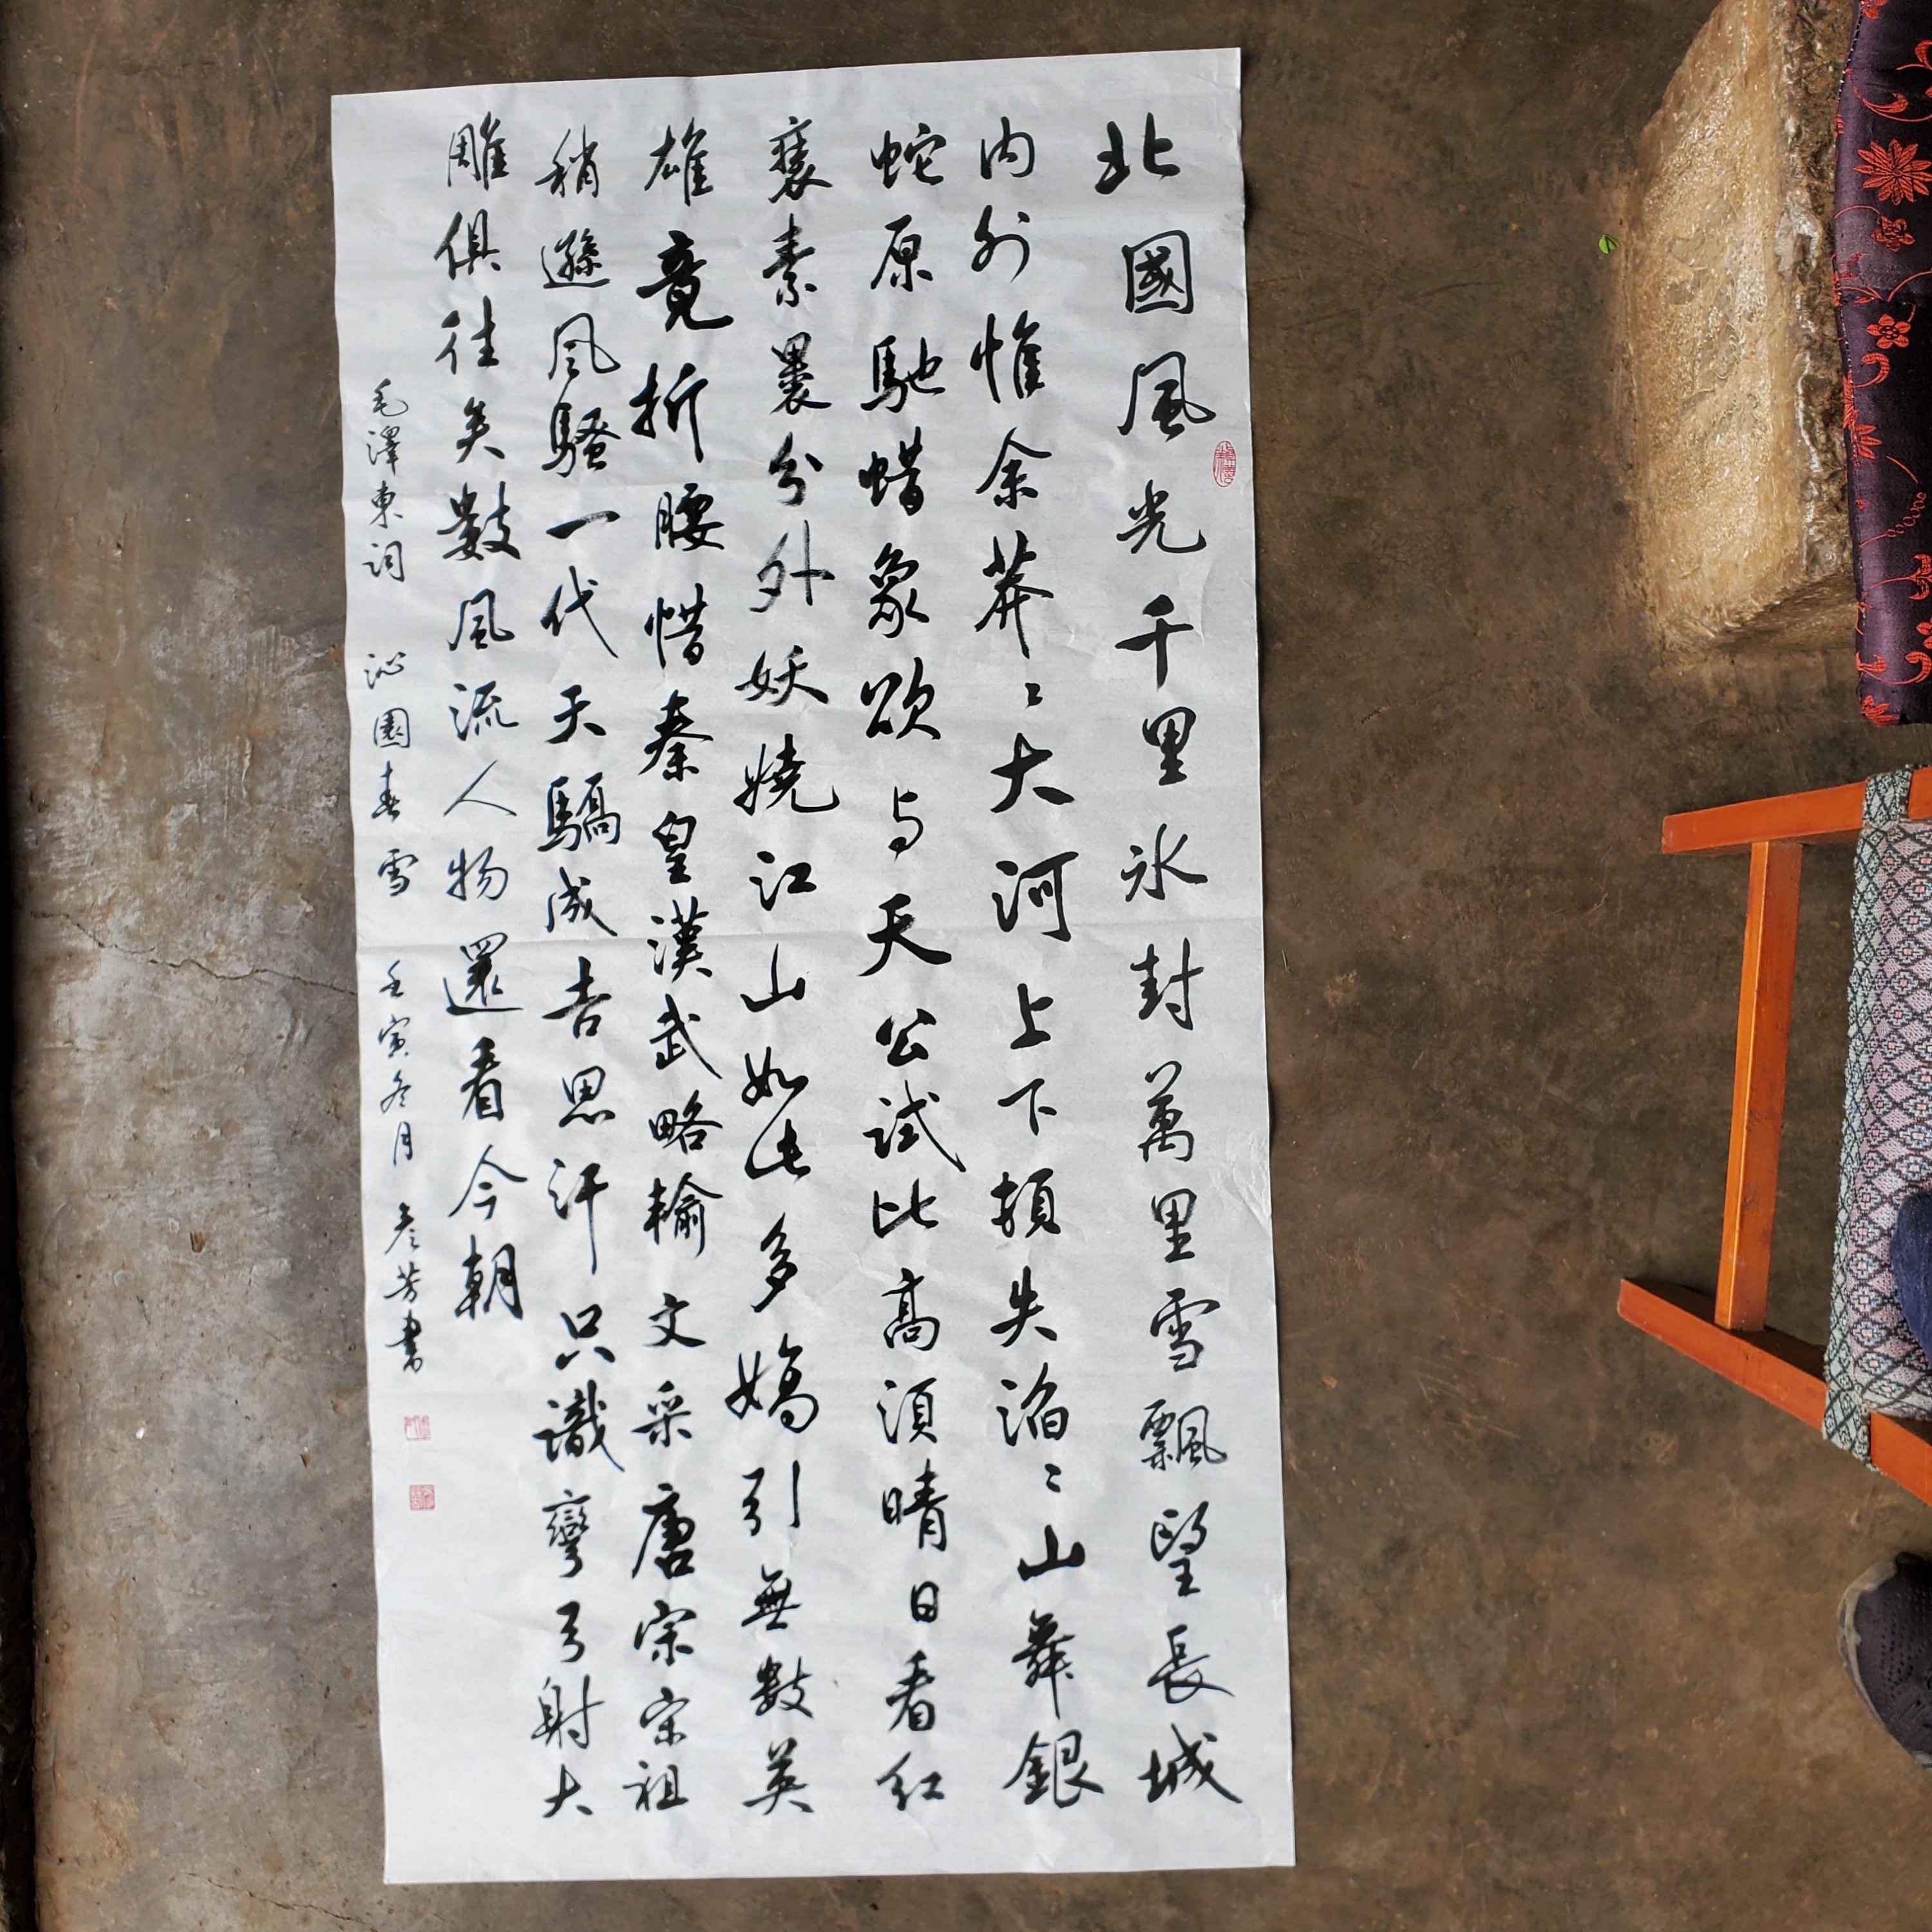 北國風光千里氷封萬里雪飄望長城
内外惟余莽〻大河上下頓失滔〻山舞銀
蛇原馳蜡象欲与天公試比高須晴日看紅
裹素裹分外妖嬈江山如此多嬌引無數英
雄竟折腰惜秦皇漢武略輸文采唐宗宋祖
稍遜風騷一代天驕成吉思汗只識彎弓射大
雕俱往矣數風流人物還看今朝
毛澤東詞 沁園春 雪 壬寅冬月 彦芳書